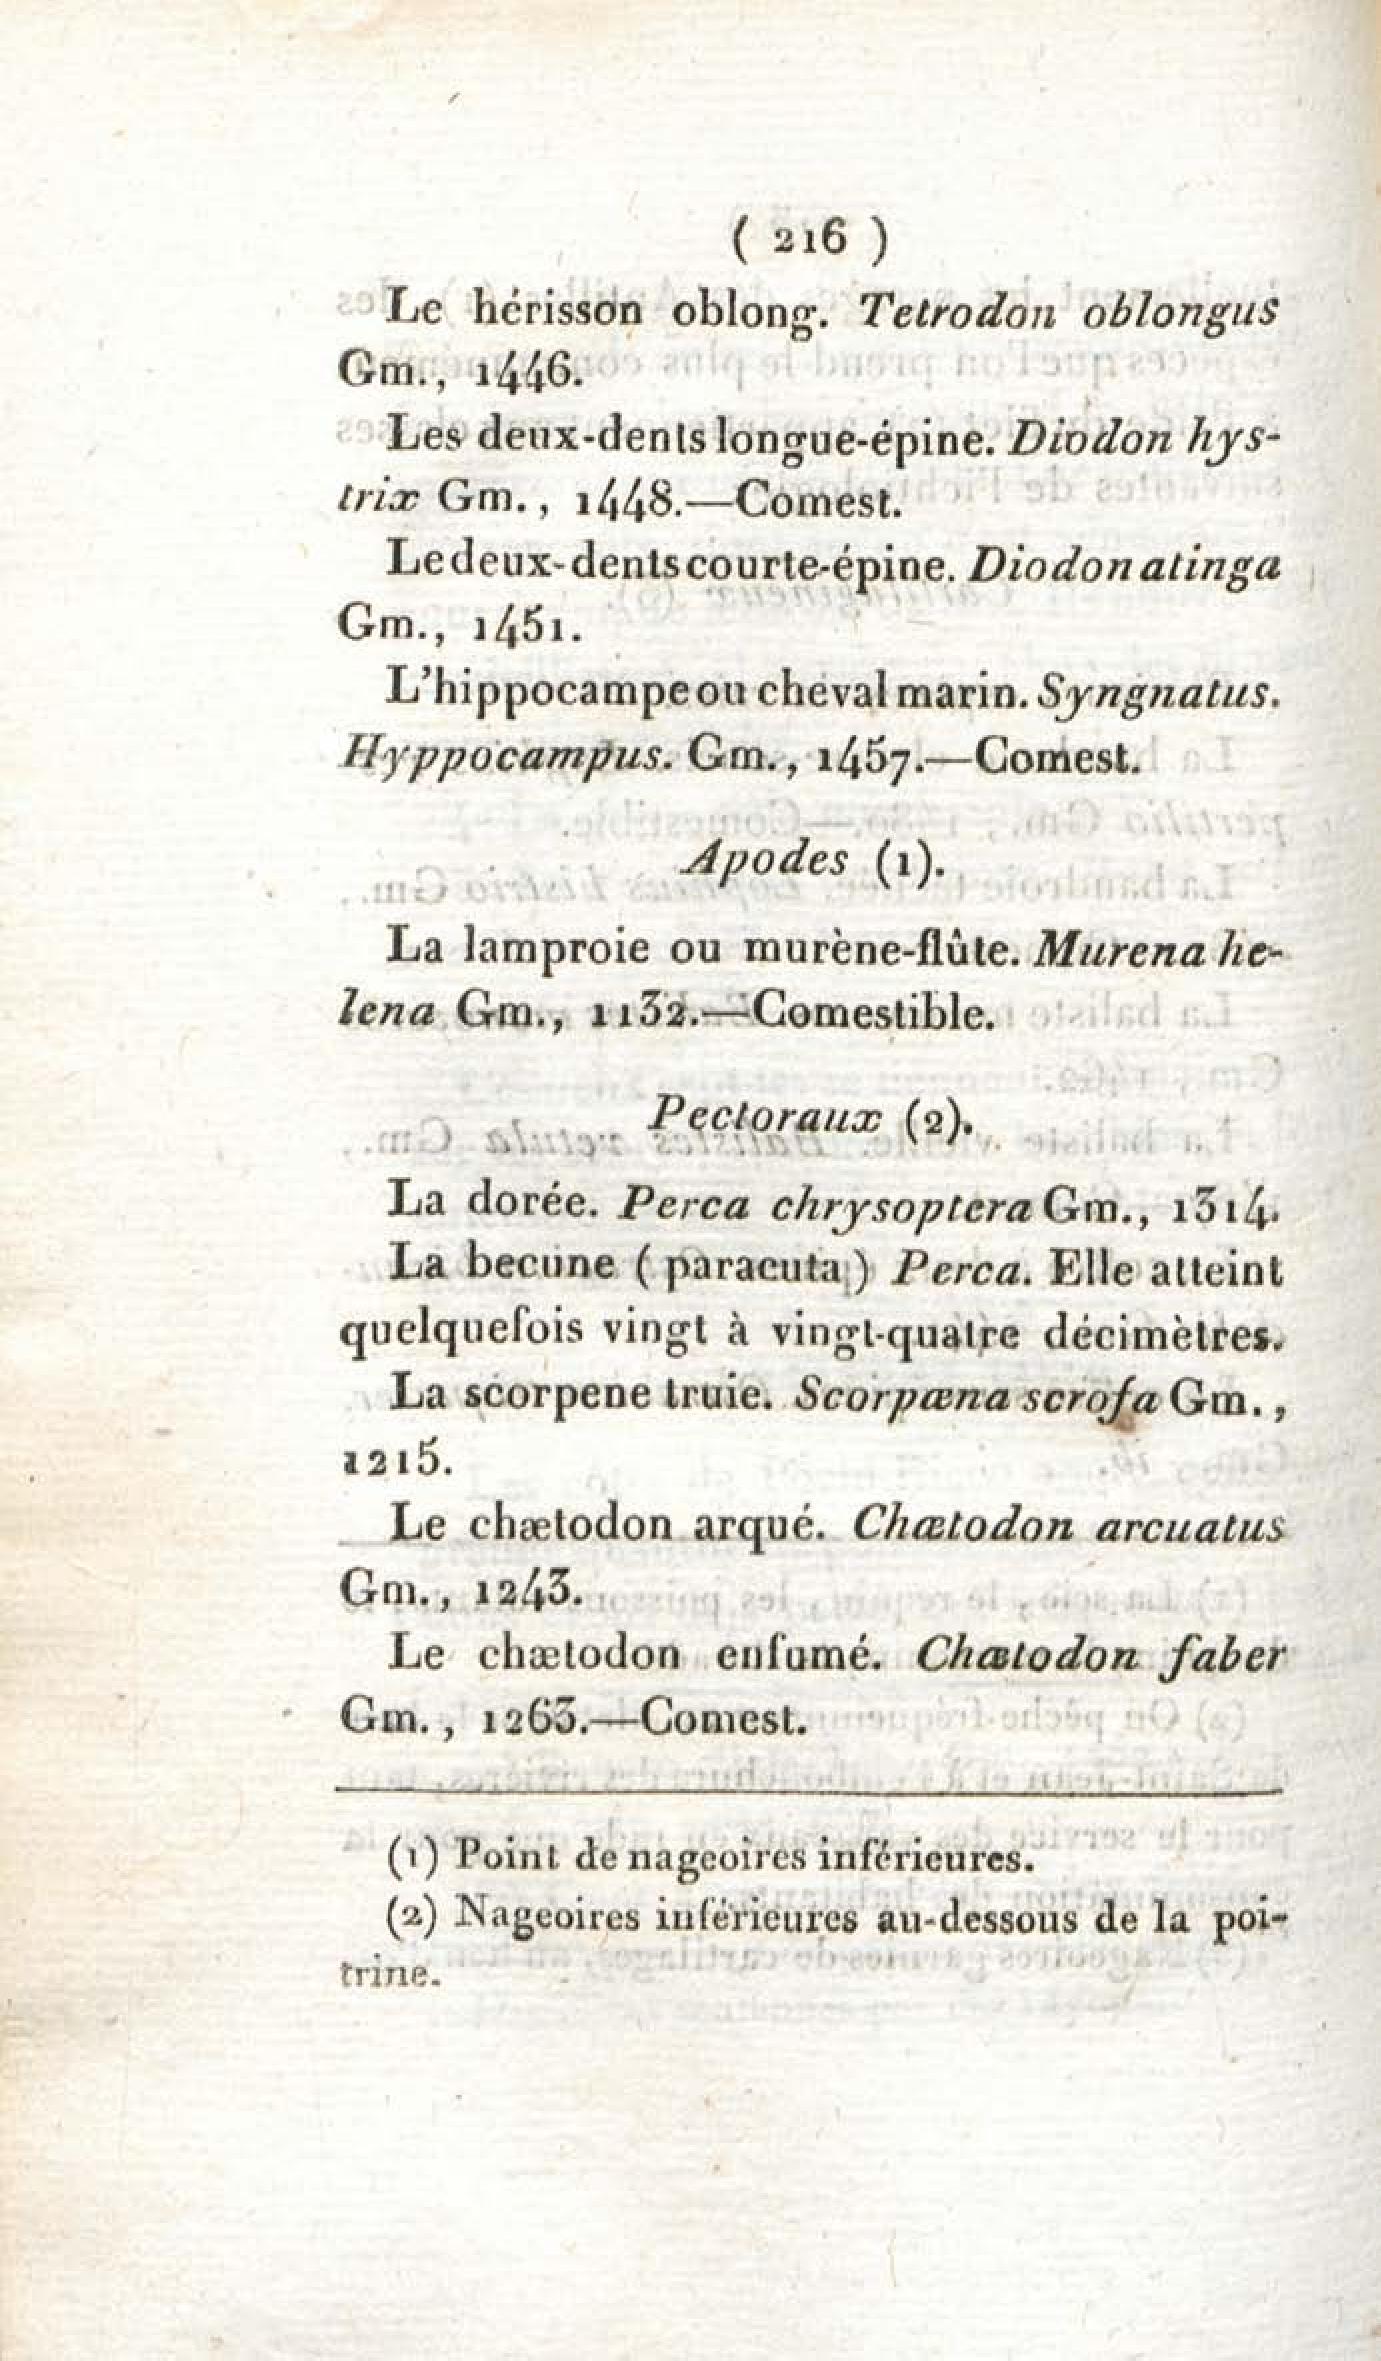 ( 216 )
Le hérisson oblong. Tetrodon oblongus
Gm., 1446.
Les deux-dents longue-épine. Diodon hys-
trix Gm., 1448.—Comest.
Le deux-dents courte-épine. Diodon atinga
Gm., 1451.
L'hippocampe ou cheval marin. Syngnatus.
Hyppocampus. Gm., 1457.—Comest.
Apodes (1).
La lamproie ou murène-flûte. Murena he-
lena Gm., 1132.—Comestible.
Pectoraux (2).
La dorée. Perca chrysoptera Gm., 1314.
La becune ( paracuta ) Perca. Elle atteint
quelquefois vingt à vingt-quatre décimètres.
La scorpene truie. Scorpæna scrofa Gm.,
1215.
Le chætodon arqué. Chætodon arcuatus
Gm., 1243.
Le chætodon enfumé. Chætodon faber
Gm., 1263.—Comest.
(1) Point de nageoires inférieures.
(2) Nageoires inférieures au-dessous de la poi-
trine.